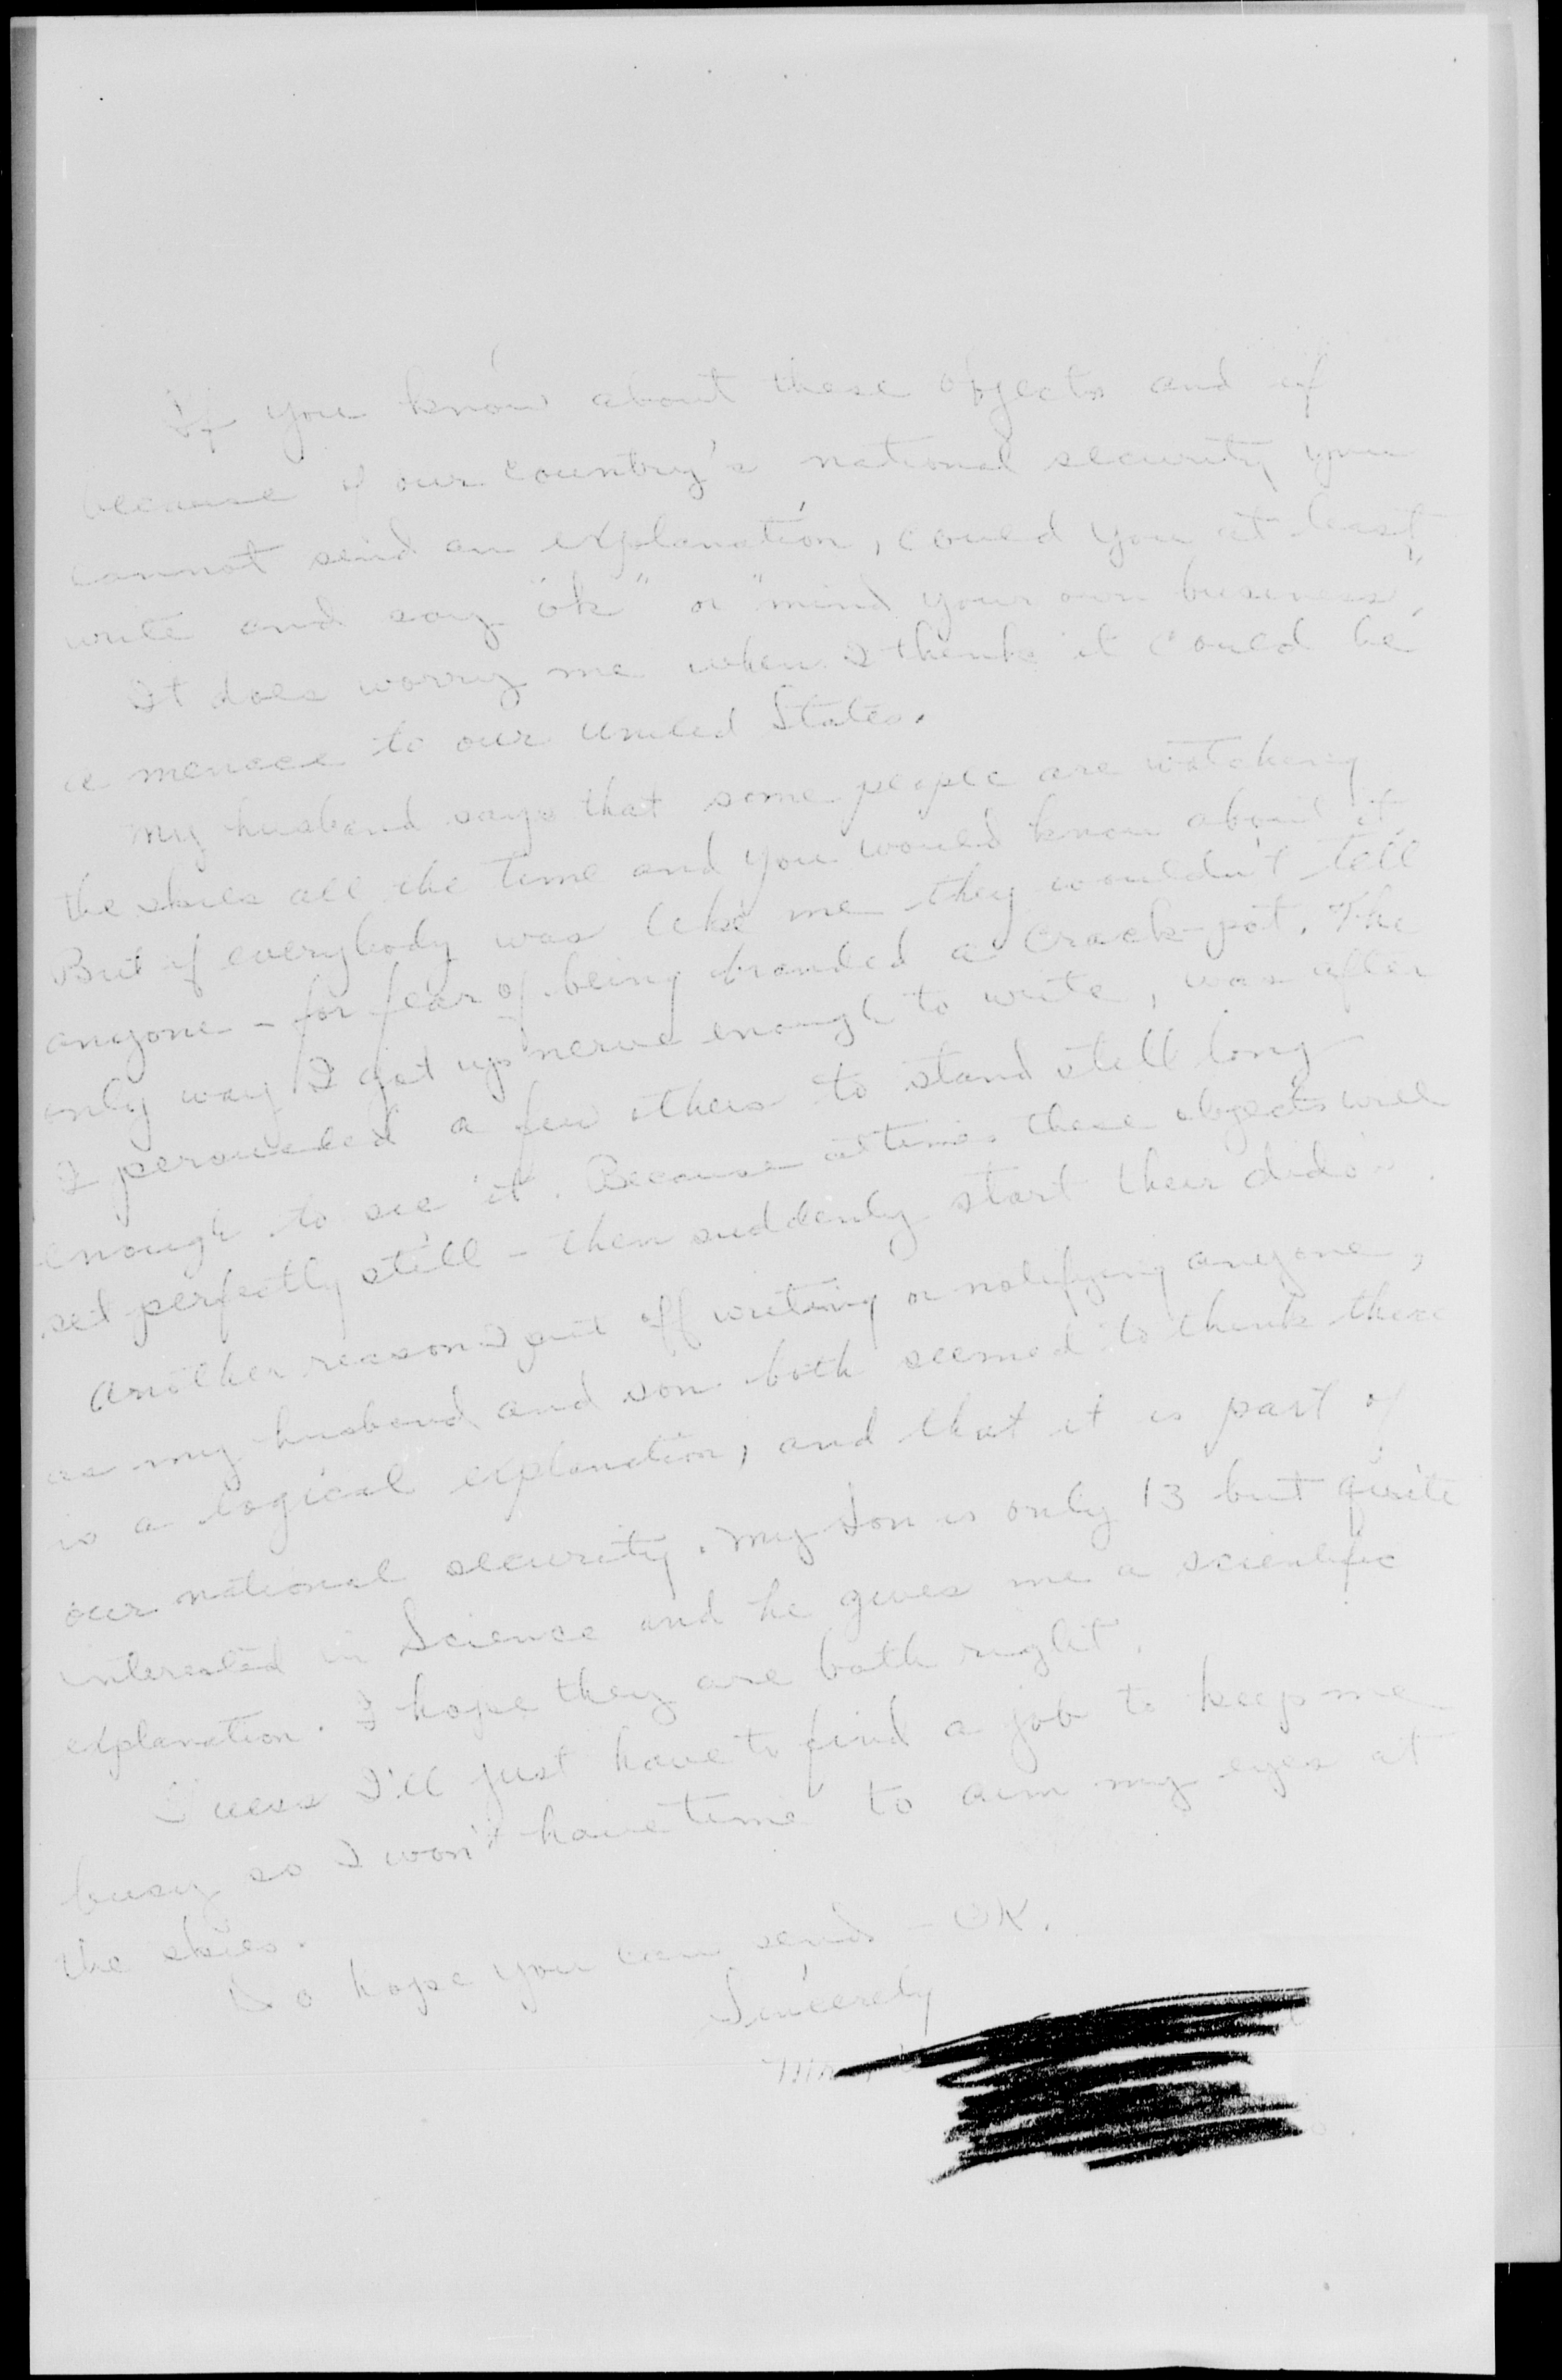 If you know about these objects and if
because of our country's national security you
cannot send an explanation, could you at least
write and say "ok" or "mind your own business".
It does worry me when I think it could be
a menace to our United States.
My husband says that some people are watching
the skies all the time and you would know about it.
But if everybody was like me they wouldn't tell
anyone - for fear of being branded a crack-pot. The
only way I got up nerve enough to write, was after
I persuaded a few others to stand still long
enough to see it. Because at times these objects will
set perfectly still - then suddenly start their dido's.
Another reason I put off writing or notifying anyone,
as my husband and son both seemed to think there
is a logical explanation, and that it is part of
our national security. My Son is only 13 but quite
interested in Science and he gives me a scientific
explanation. I hope they are both right.
Guess I'll just have to find a job to keep me
busy so I won't have time to aim my eyes at
the skies.
Do hope you can send - OK.
Sincerely
Mrs.